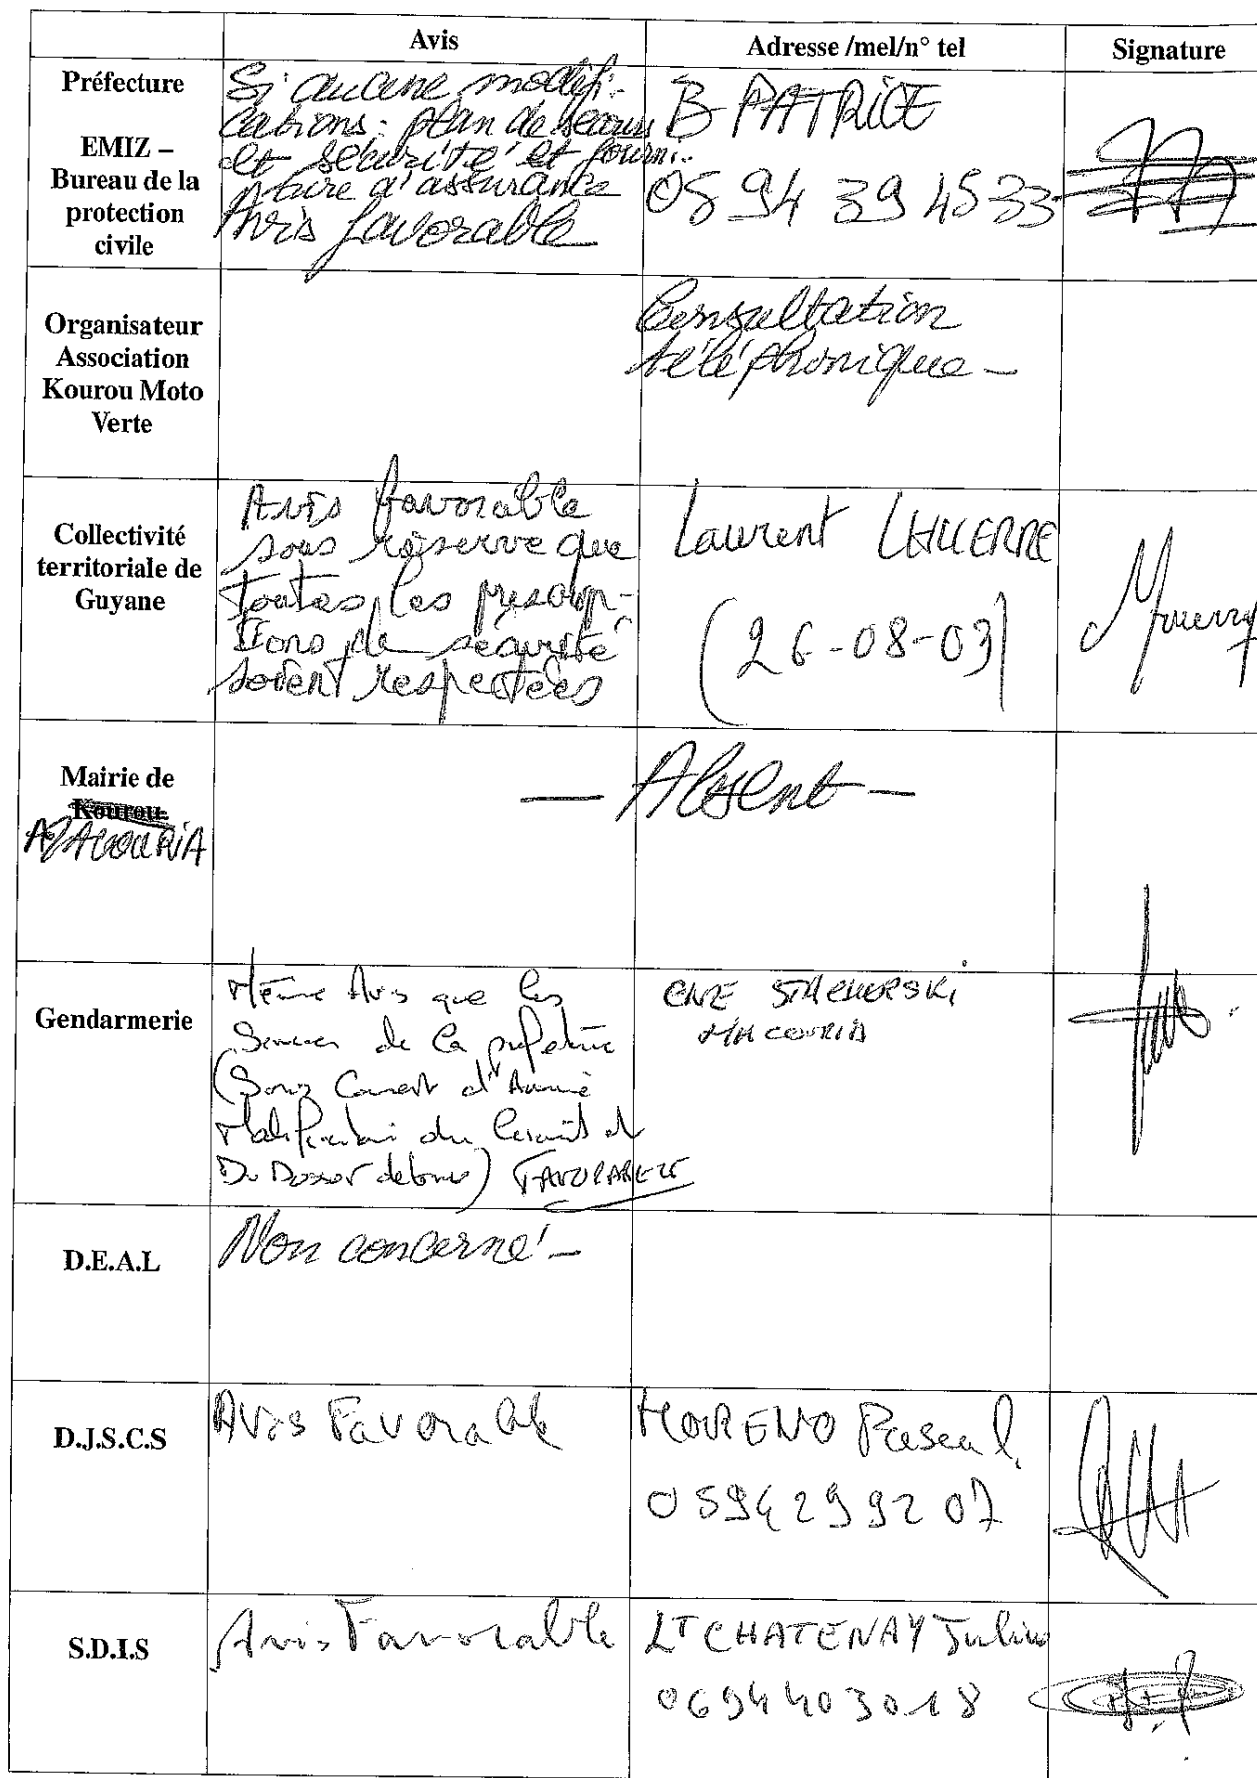 Avis
Adresse /mel/n° tel
Signature
Préfecture
EMIZ –
Bureau de la
protection
civile
Si aucune modifi-
cations: plan de secours
et sécurité et fourni-
ture d'assurance
Avis favorable
B PATRICE
05 94 39 45 33
Organisateur
Association
Kourou Moto
Verte
Consultation
téléphonique –
Collectivité
territoriale de
Guyane
Avis favorable
sous réserve que
toutes les prescrip-
tions de sécurité
soient respectées
Laurent
(26-08-03)
Mairie de
Kourou
— Absent —
Gendarmerie
Même Avis que les
Services de la préfecture
(Sous Couvert d'Aucune
Modification du Circuit
Du Dossier) FAVORABLE
CNE
MACOURIA
D.E.A.L
Non concerné –
D.J.S.C.S
Avis Favorable
MORENO Pascal
0594299207
S.D.I.S
Avis Favorable
LT CHATENAY Julien
0694403018